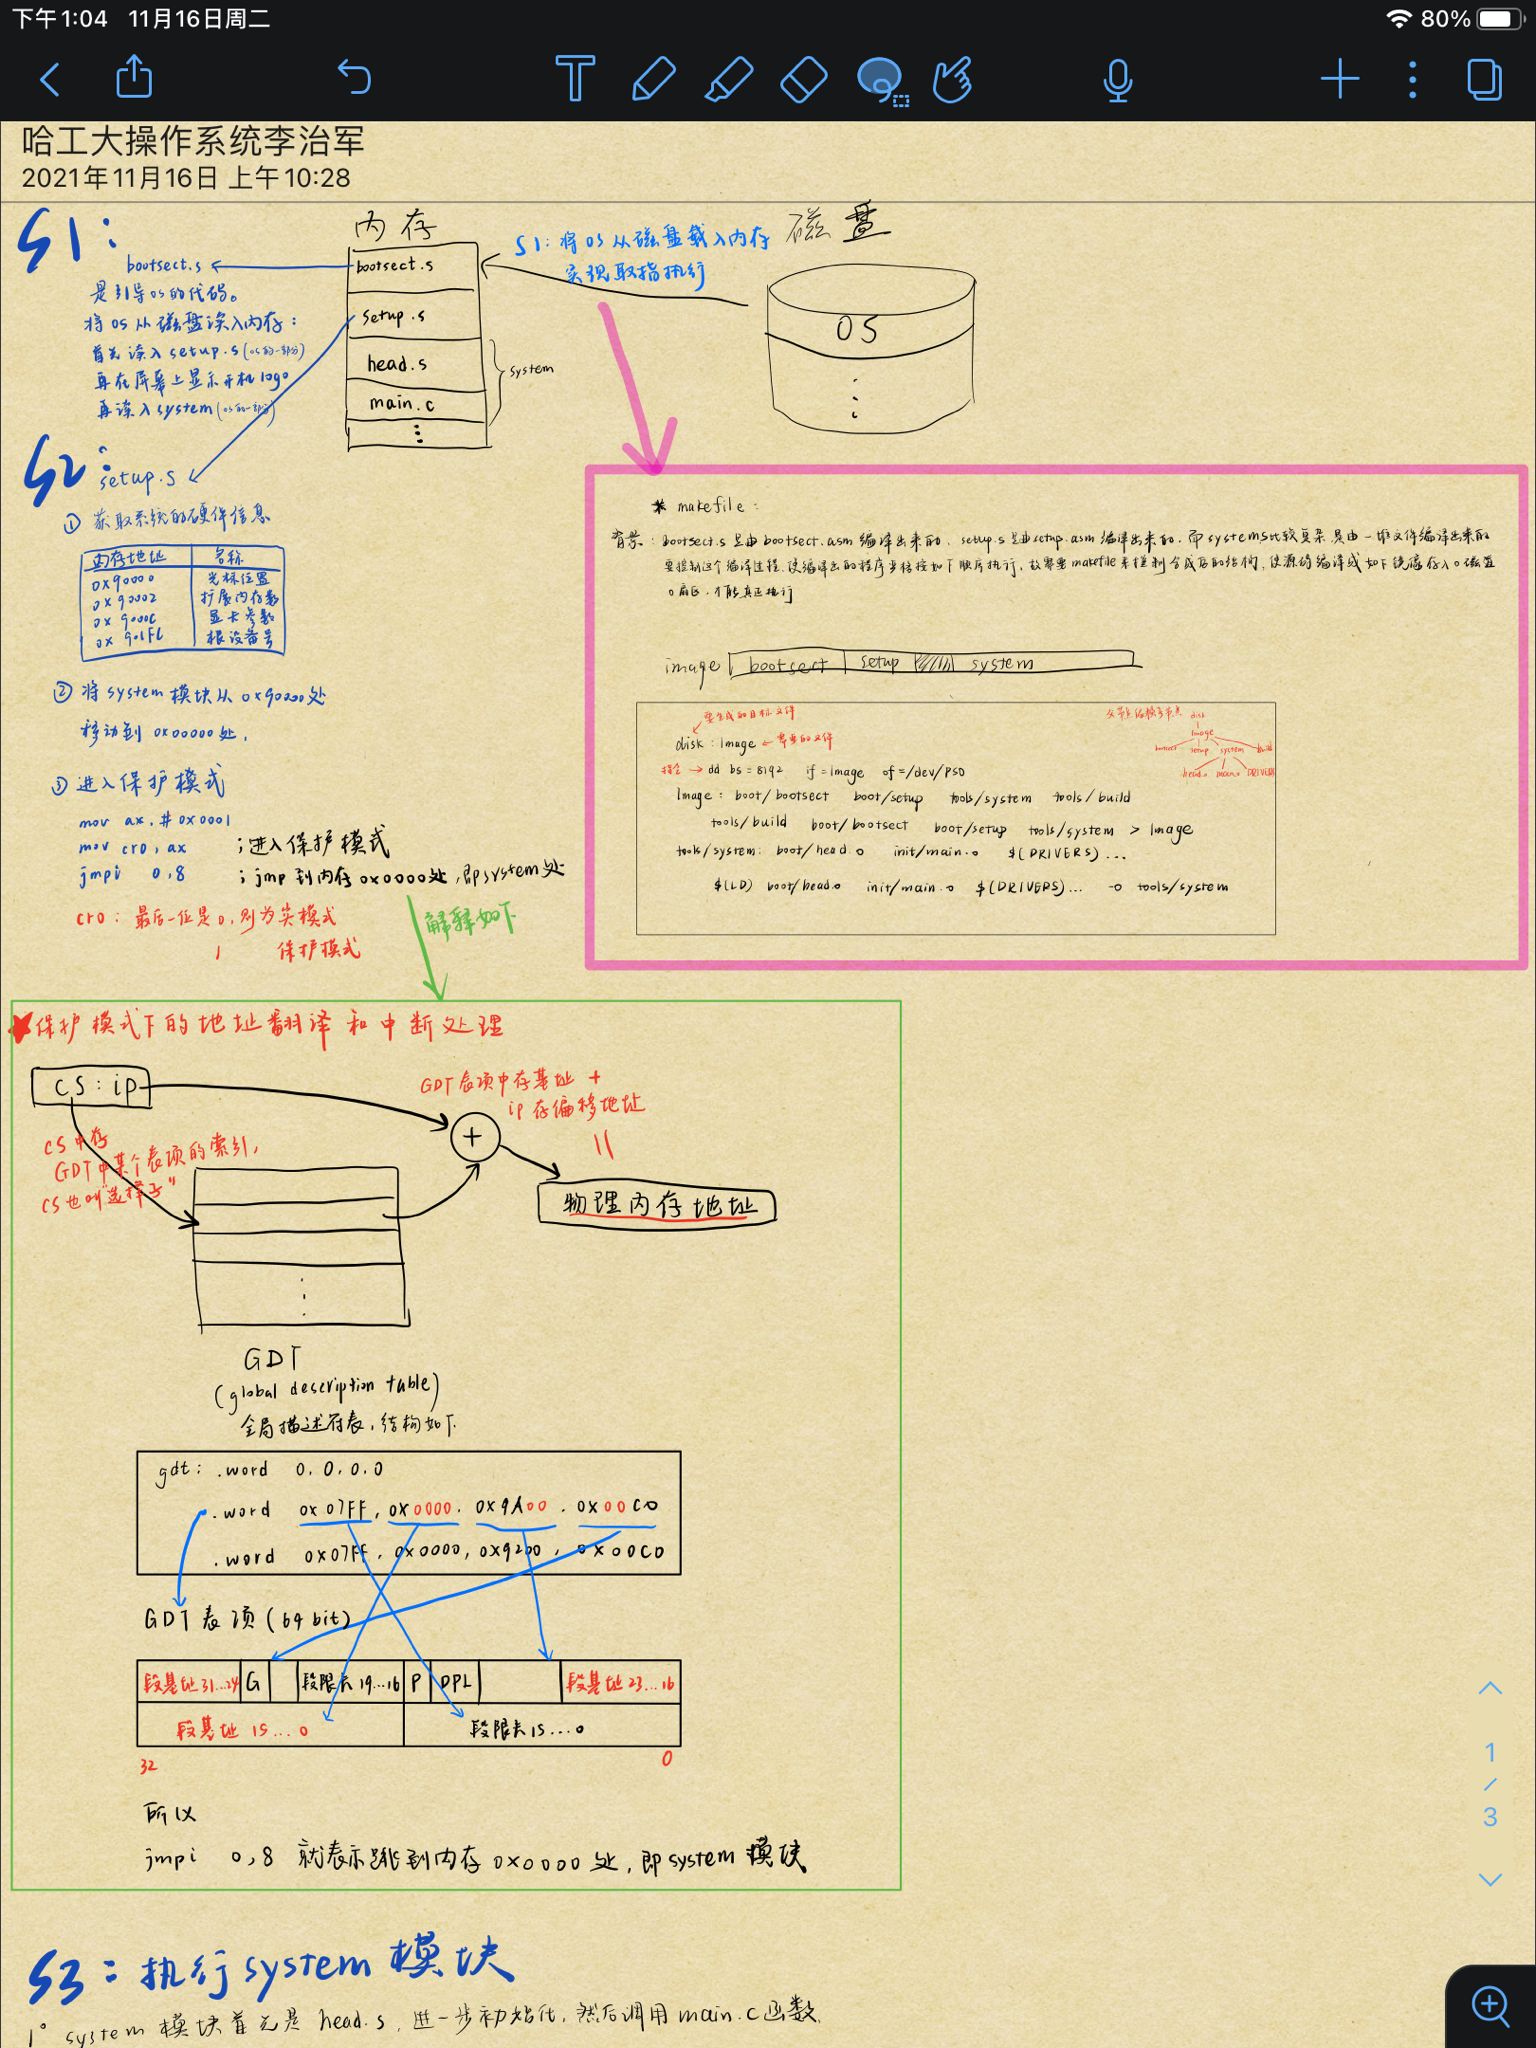 下午1:04 11月16日周二
80%
哈工大操作系统李治军
2021年11月16日 上午10:28
S1:
内存
磁盘
S1: 将OS从磁盘载入内存
实现取指执行
bootsect.s
setup.s
head.s
main.c
system
OS
bootsect.s
是引导OS的代码。
将OS从磁盘读入内存:
首先读入setup.s(OS的一部分)
再在屏幕上显示开机logo
再读入system(OS的一部分)
S2:
setup.s
① 获取系统的硬件信息
内存地址 名称
0x90000 光标位置
0x90002 扩展内存数
0x9000C 显卡参数
0x901FC 根设备号
② 将system模块从0x90000处
移动到0x00000处,
③ 进入保护模式
mov ax,#0x0001
mov cr0,ax ;进入保护模式
jmpi 0,8 ;jmp到内存0x0000处,即system处
cr0: 最后一位是0,则为实模式
1 保护模式
解释如下
* makefile:
背景: bootsect.s是由bootsect.asm编译出来的, setup.s是由setup.asm编译出来的, 而system比较复杂是由一堆文件编译出来的
要控制这个编译过程,使编译出的程序严格按如下顺序执行,故需要makefile来控制合成后的结构,使源码编译成如下镜像存入0磁盘
0扇区,才能真正执行
image bootsect setup system
要生成的目标文件
disk: Image ← 需要的文件
指令 → dd bs=8192 if=Image of=/dev/PS0
Image: boot/bootsect boot/setup tools/system tools/build
tools/build boot/bootsect boot/setup tools/system > Image
tools/system: boot/head.o init/main.o $(DRIVERS)...
$(LD) boot/head.o init/main.o $(DRIVERS)... -o tools/system
disk
Image
bootsect setup system build
head.o main.o DRIVERS
★保护模式下的地址翻译和中断处理
CS:ip
GDT表项中存基址 +
ip存偏移地址
=
CS中存
GDT中某个表项的索引,
CS也叫"选择子"
+
物理内存地址
GDT
(global description table)
全局描述符表,结构如下
gdt: .word 0,0,0,0
.word 0x07FF, 0x0000, 0x9A00, 0x00C0
.word 0x07FF, 0x0000, 0x9200, 0x00C0
GDT表项(64bit)
段基址31...24 G 段限长19...16 P DPL 段基址23...16
段基址15...0 段限长15...0
32 0
所以
jmpi 0,8 就表示跳到内存0x0000处,即system模块
S3: 执行system模块
1° system模块首先是head.s,进一步初始化,然后调用main.c函数.
1
/
3